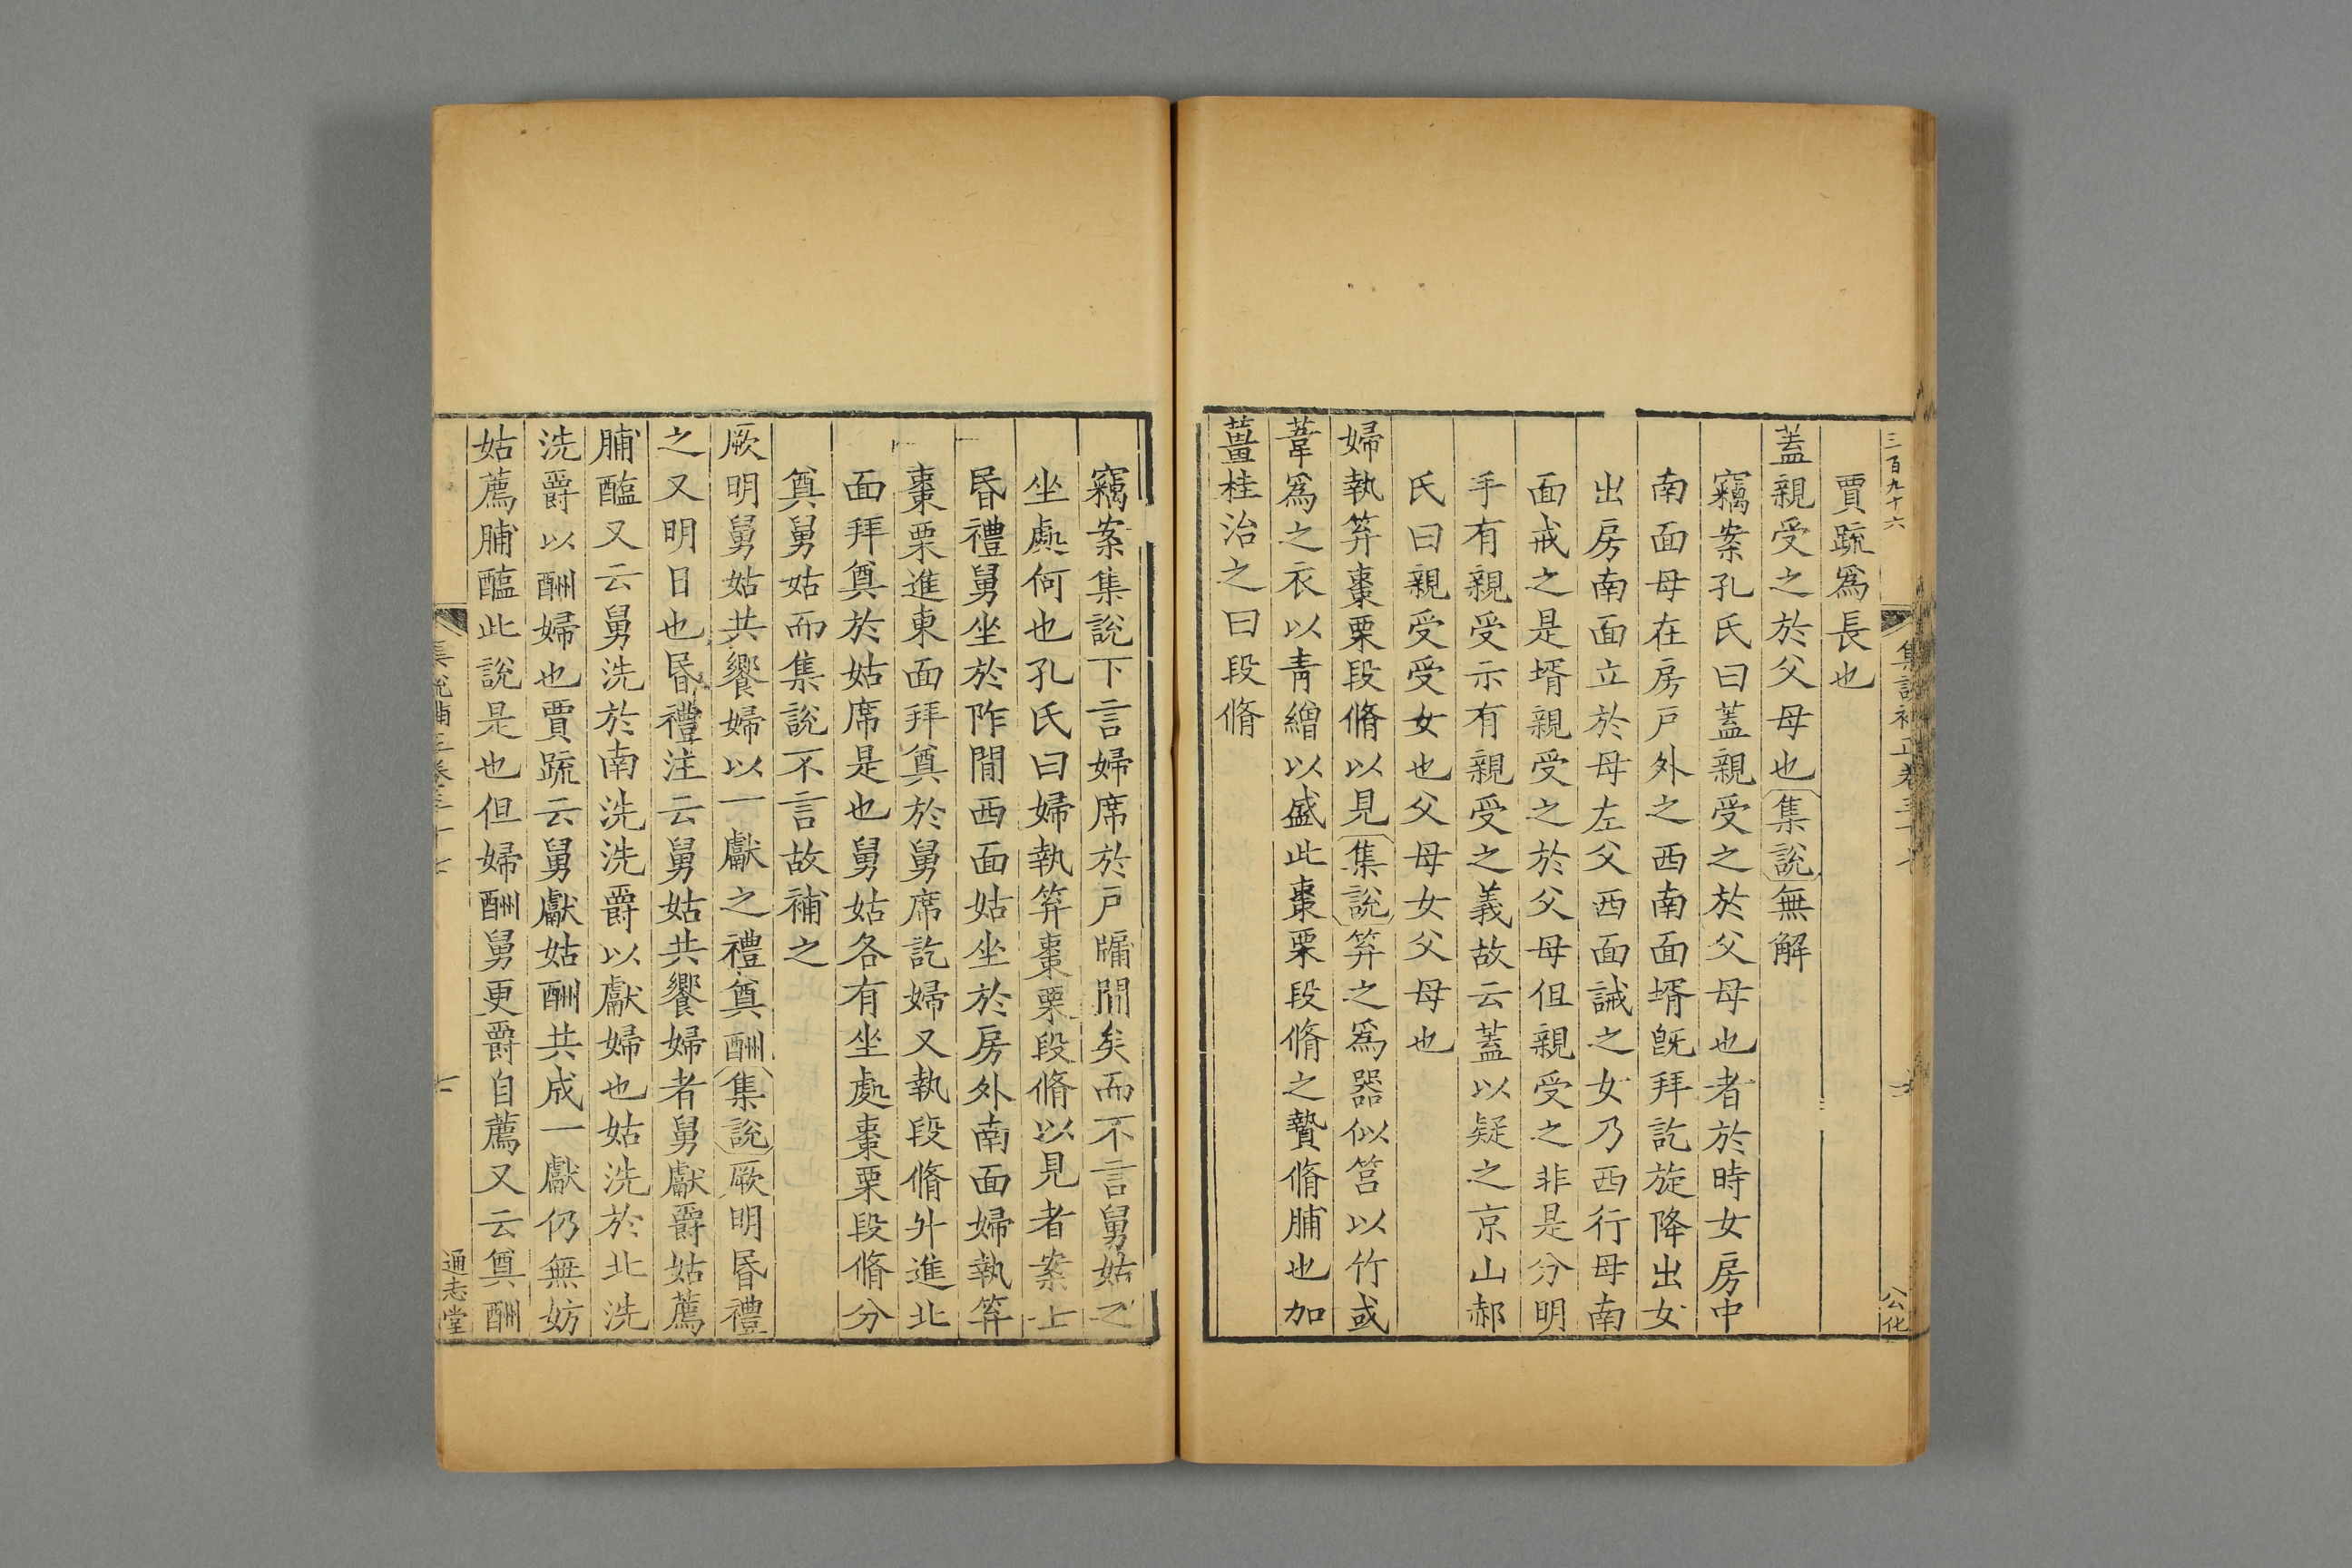 三百九十六
集說補正卷三十七
公化
賈疏爲長也
蓋親受之於父母也集說無解
竊案孔氏曰蓋親受之於父母也者於時女房中
南面母在房戸外之西南面壻旣拜訖旋降出女
出房南面立於母左父西面誡之女乃西行母南
面戒之是壻親受之於父母但親受之非是分明
手有親受示有親受之義故云蓋以疑之京山郝
氏曰親受受女也父母女父母也
婦執笲棗栗段脩以見集說笲之爲器似筥以竹或
葦爲之衣以青繒以盛此棗栗段脩之贄脩脯也加
薑桂治之曰段脩
竊案集說下言婦席於戸牖間矣而不言舅姑之
坐處何也孔氏曰婦執笲棗栗段脩以見者案士
昏禮舅坐於阼閒西面姑坐於房外南面婦執笲
棗栗進東面拜奠於舅席訖婦又執段脩升進北
面拜奠於姑席是也舅姑各有坐處棗栗段脩分
奠舅姑而集說不言故補之
厥明舅姑共饗婦以一獻之禮奠酬集說厥明昏禮
之又明日也昏禮注云舅姑共饗婦者舅獻爵姑薦
脯醢又云舅洗於南洗洗爵以獻婦也姑洗於北洗
洗爵以酬婦也賈疏云舅獻姑酬共成一獻仍無妨
姑薦脯醢此說是也但婦酬舅更爵自薦又云奠酬
集說補正卷三十七
通志堂